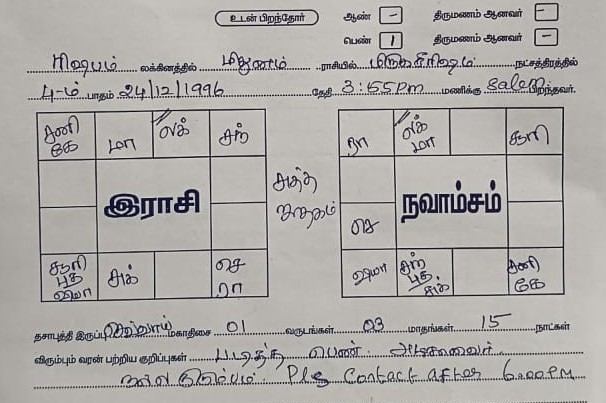 உடன் பிறந்தோர் ஆண் – திருமணம் ஆனவர் –
பெண் 1 திருமணம் ஆனவர் –
ரிஷபம் லக்கினத்தில் மிதுனம் ராசியில் மிருகசீரிஷம் நட்சத்திரத்தில்
4-ம் பாதம் 24/12/1996 தேதி 3:55pm மணிக்கு Salem பிறந்தவர்.
சனி கே மா லக் சந்
ரா லக் மா சூரி
இராசி சுத்த ஜாதகம் நவாம்சம்
செ
சூரி புத சுக் செ ரா
சந் புத சுக் சனி கே
தசாபுத்தி இருப்பு செவ்வாய் மகாதிசை 01 வருடங்கள் 03 மாதங்கள் 15 நாட்கள்
விரும்பும் வரன் பற்றிய குறிப்புகள் படித்த பெண்
நல்ல குடும்பம். Pls Contact after 6.00PM